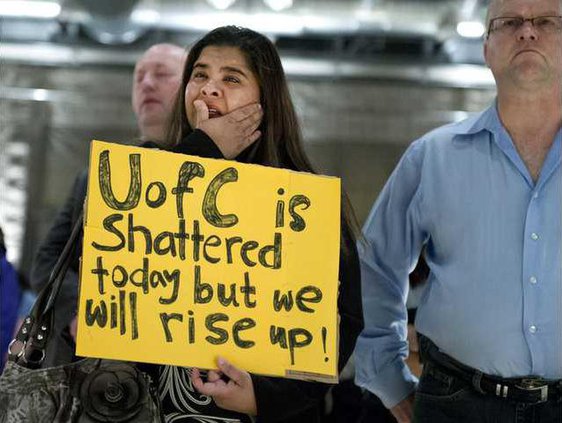 UofC is
Shattered
today but we
will rise up!